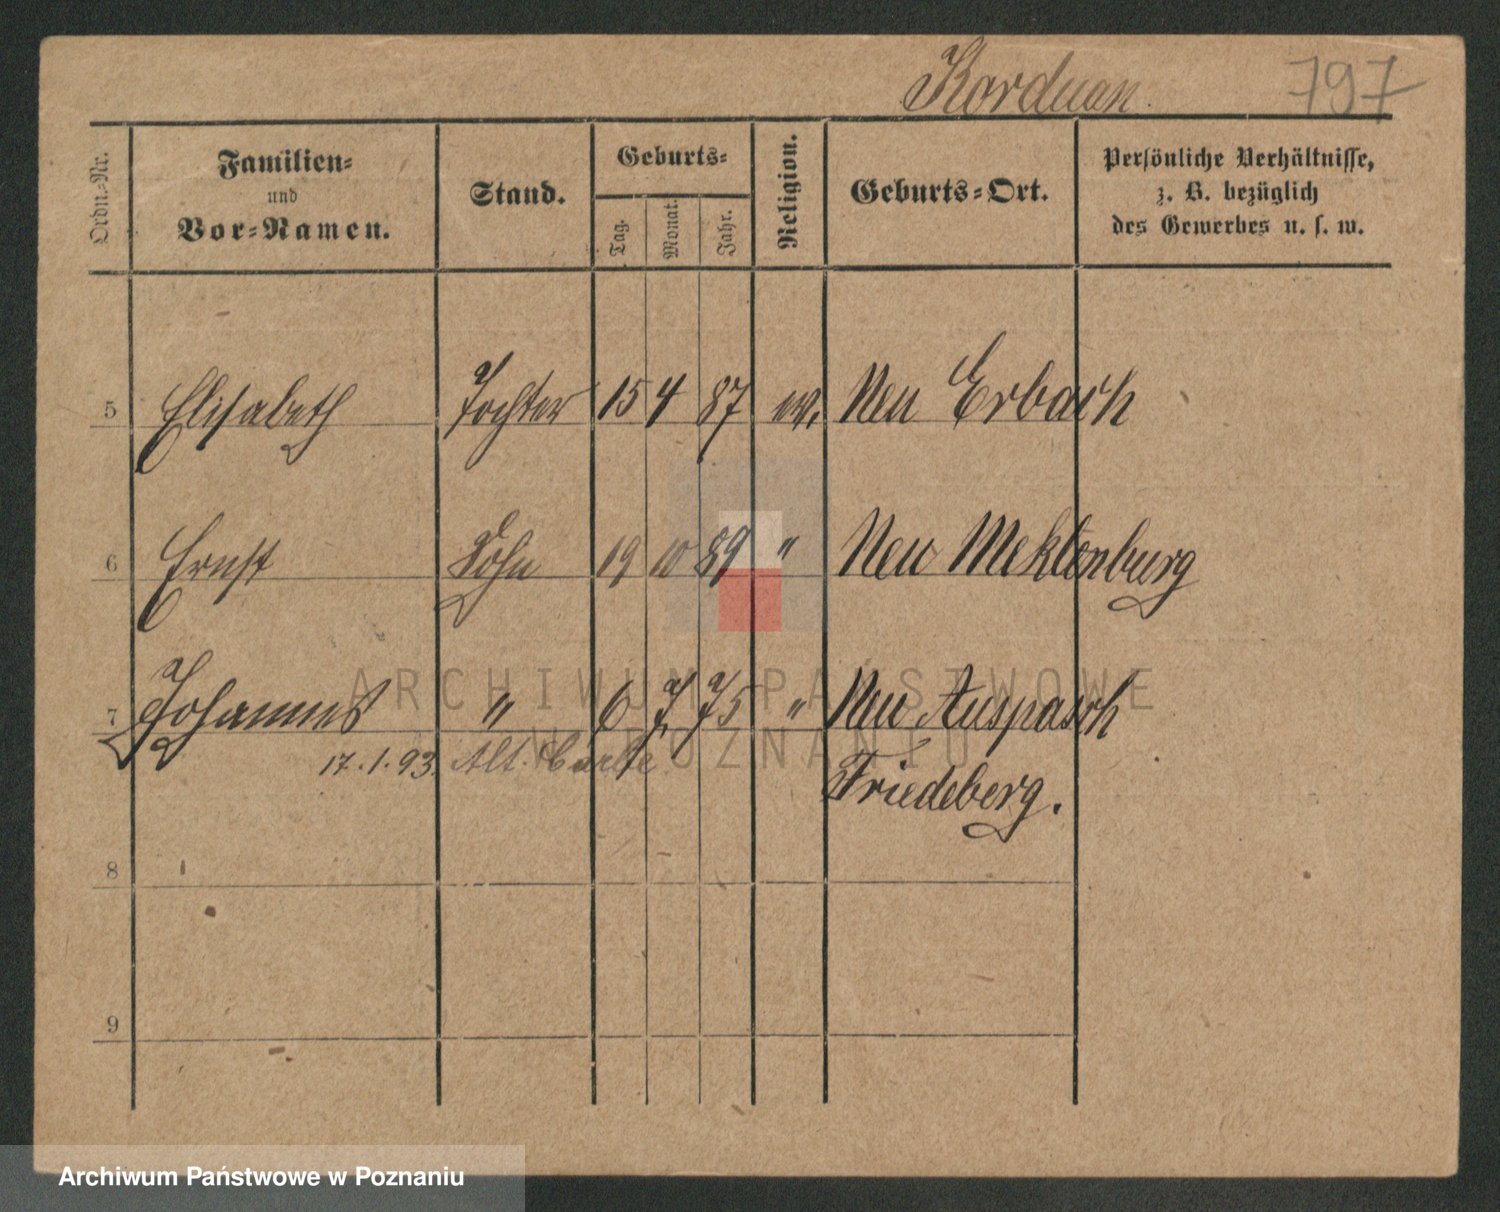 Korduan.
797
Ordn.-Nr.
Familien-
und
Vor-Namen.
Stand.
Geburts-
Tag.
Monat.
Jahr.
Religion.
Geburts-Ort.
Persönliche Verhältnisse,
z. B. bezüglich
des Gewerbes u. s. w.
5 Elisabeth Tochter 15 4 87 ev. Neu Erbach
6 Ernst Sohn 19 10 89 " Neu Meklenburg
7 Johannes " 6 7 75 " Neu
17.1.93. Alt.
Friedeberg.
8
9
ARCHIWUM PAŃSTWOWE
W POZNANIU
Archiwum Państwowe w Poznaniu